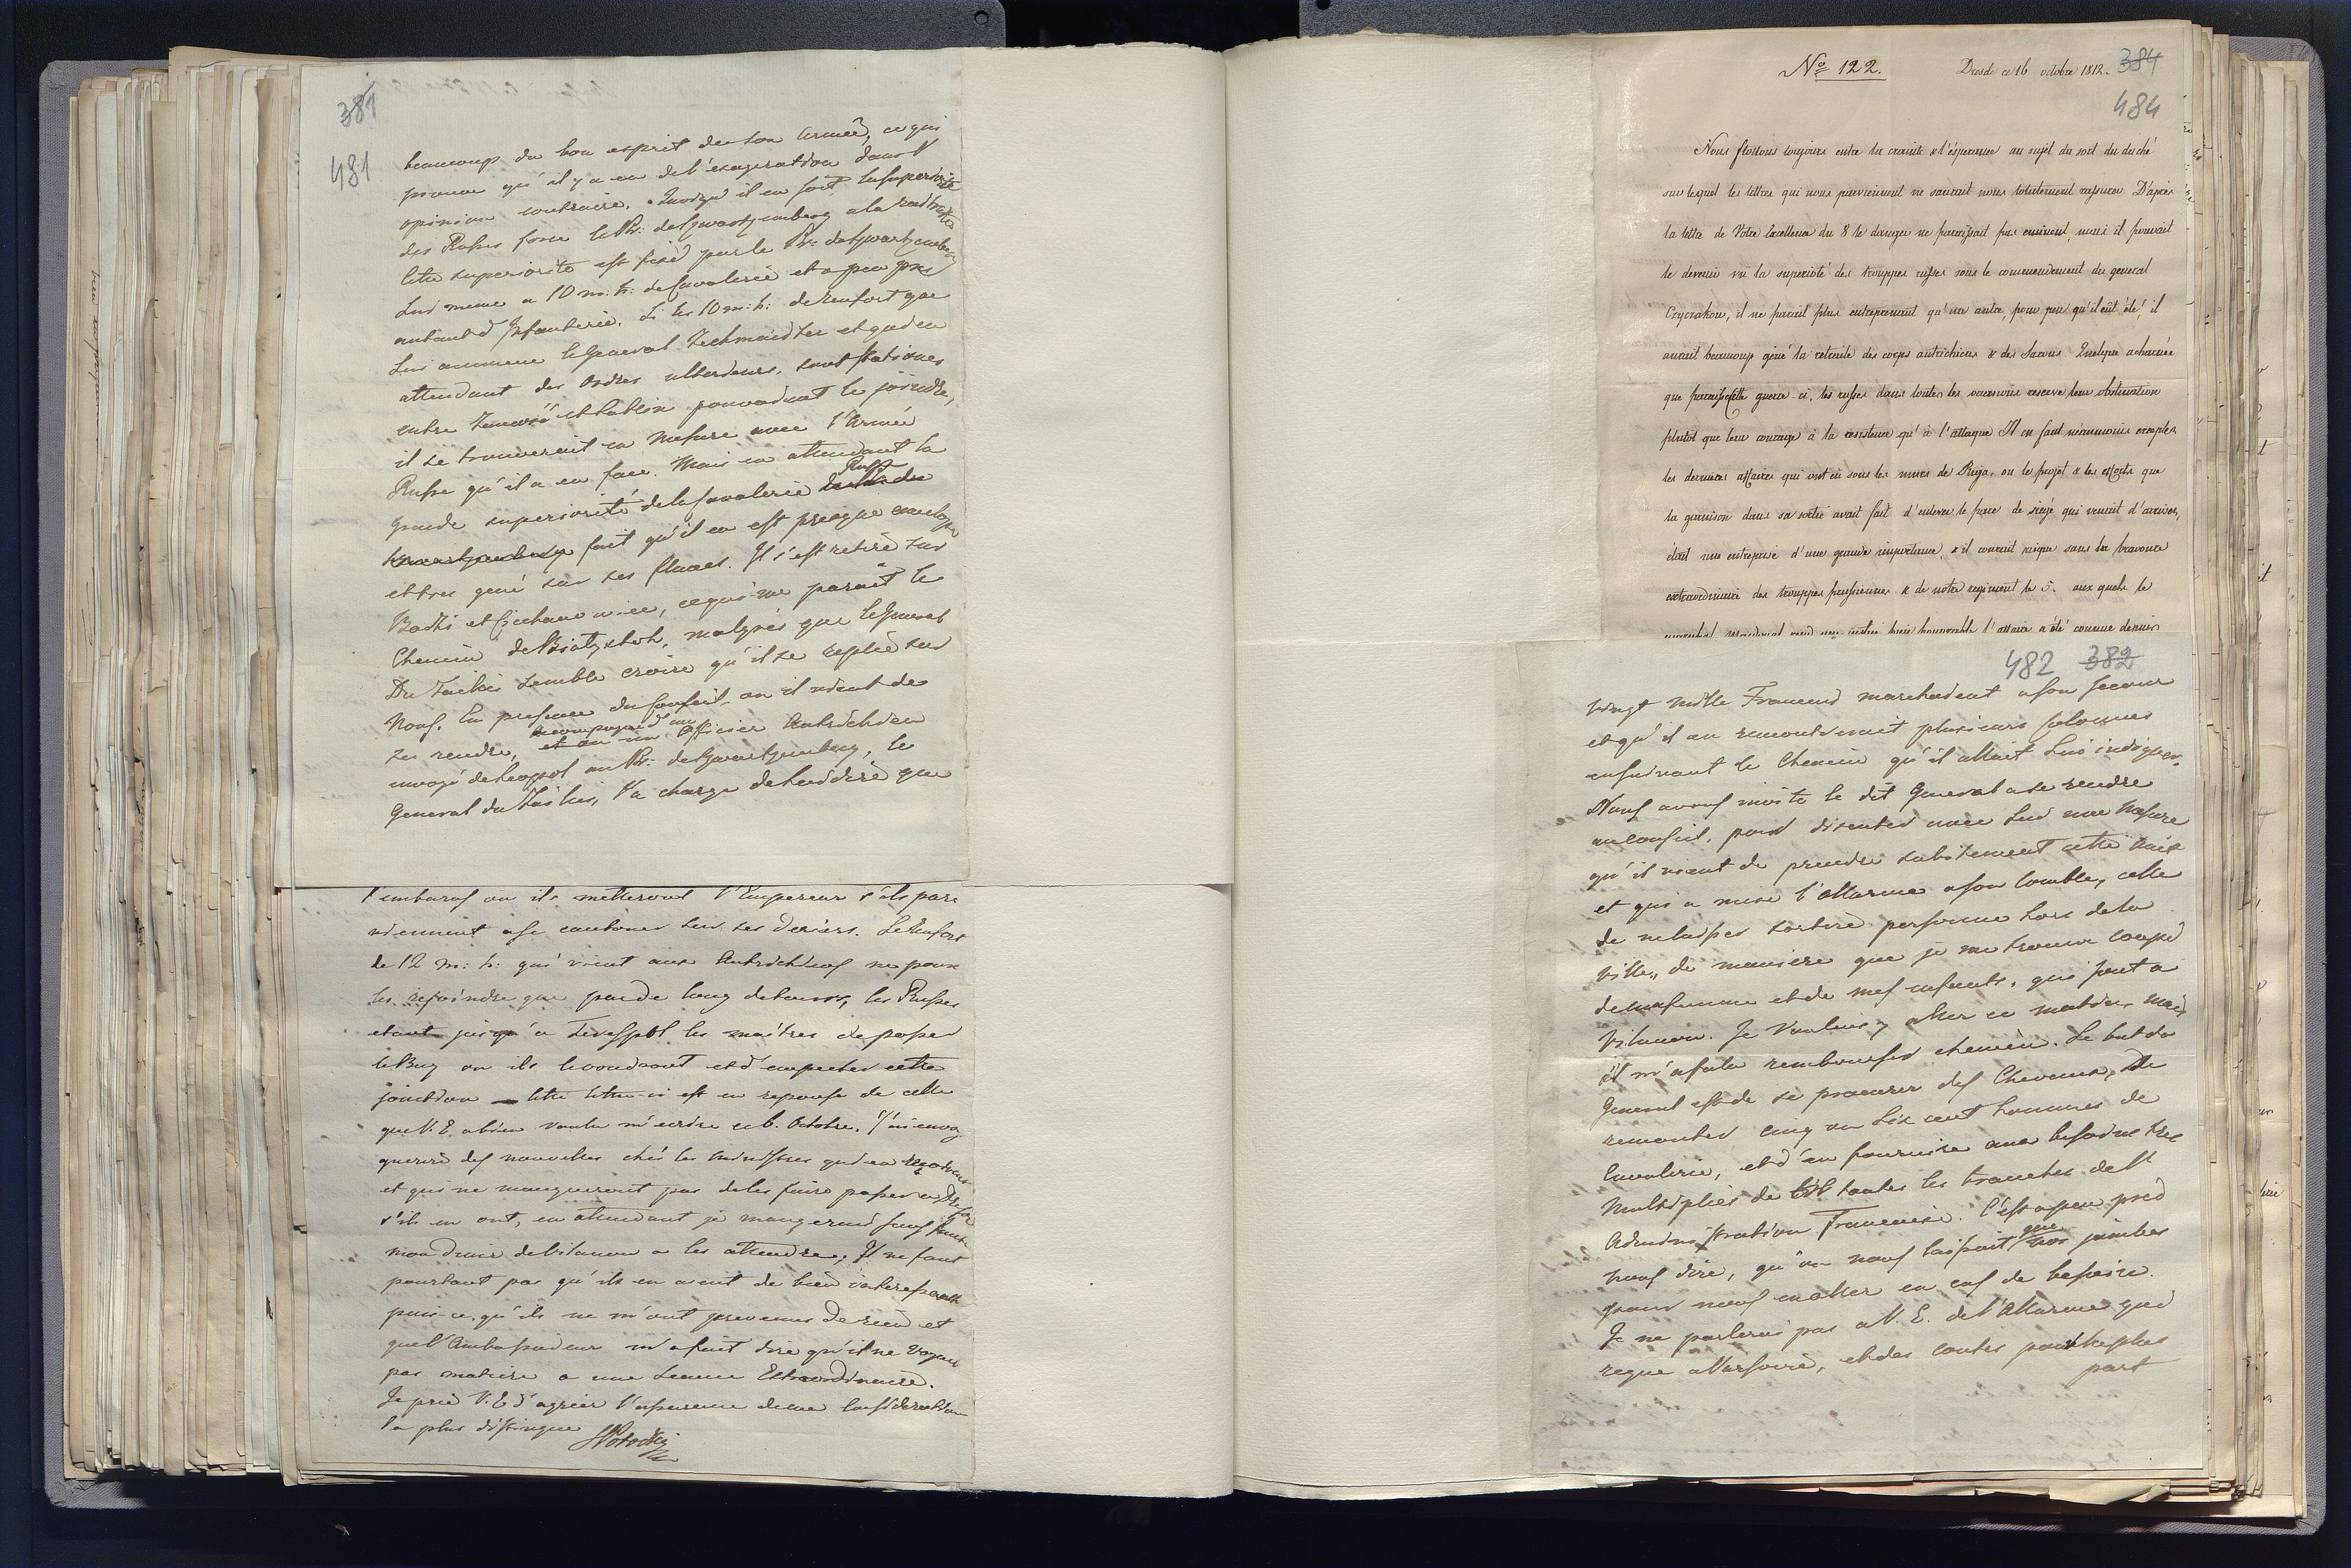 381
481
beaucoup du bon esprit de son Armée, ce qui
prouve qu'il y a eu de l'exageration dans l'
opinion contraire. Quoiqu'il en soit la superiorité
des Russes force le Pr: de Szwartzemberg a la
Cette superiorité est fixé par le Pr: de Szwartzemberg
Lui meme a 10 m: h: de Cavalerie et a peu pres
autant d'Infanterie. Si les 10 m: h: de renfort que
Lui ammene le General et qui en
attendant des Ordres ulterieurs, sont stationés
entre Zamosć et Lublin pouvoient le joindre,
il se trouveroit en Mesure avec l'Armée
Russe qu'il a en face. Mais en attendant la
grande superiorité de la Cavalerie Russe
fait qu'il en est presque envelopé
et tres gené sur ses flancs. Il s'est retiré sur
Bocki et Ciechanowiec, ce qui me parait le
Chemin de Białystok, malgrés que le General
Du Taillis semble croire qu'il se replie sur
Nous. En presence du Conseil ou il vient de
se rendre, accompagné d'un Officier Autrichien
envoyé de Leopol au Pr: de Szwartzemberg, le
General du Taillis, l'a chargé de Lui dire que
l'embaras ou ils metteront l'Empereur s'ils par-
viennent a se cantoner sur ses deriers. Le Renfort
de 12 m: h: qui vient aux Autrichiens ne poura
les rejoindre que par de long detours, les Russes
etant jusqu'a les maîtres de passer
le Bug ou ils le voudront et d'empecher cette
jonction — Cette lettre-ci est en reponse de celle
que V. E. a bien voulu m'ecrire ce 6. Octobre. J'ai envoyé
querir des nouvelles chés les Ministres qui en reçoivent
et qui ne manqueront pas de les faire passer a Dresde
s'ils en ont, en attendant je mangerai sans faute
mon diner de Vilanow a les attendre; Il ne faut
pourtant pas qu'ils en aient de bien interessante
puis-ce-qu'ils ne m'ont prevenus de rien et
que l'Ambassadeur m'a fait dire qu'il ne voyait
pas matiere a une Seance Extraordinaire.
Je prie V. E. d'agréer l'assurance de ma consideration
la plus distingué
SPotocki
Nº 122.
Dresde ce 16 octobre 1812.
384
484
Nous flottons toujours entre la crainte & l'espérance au sujet du sort du duché
sur lequel les lettres qui nous parviennent ne sauroit nous totalement rassurer. D'après
la lettre de Votre Excellence du 8 le danger ne paraissait pas eminent, mais il pouvait
le devenir vu la superioté des trouppes russes sous le commendement du general
Czyczakow, il ne parait plus entreprenant qu'un autre, pour peu qu'il eût été, il
aurait beaucoup géné la retraite des corps autrichiens & des Saxons. Quelque acharnée
que paraisse cette guerre-ci, les russes dans toutes les occasions reserve leur obstination
plutot que leur courage à la resistence qu'à l'attaque. Il en faut néanmoins excepter
les dernieres affaires qui ont eû sous les murs de Ryga, ou le projet & les efforts que
la garnison dans sa sortie avait fait d'enlever le parc de siège qui venait d'arriver,
était une entreprise d'une grande importance, & il courait risque sans la bravoure
extraordinaire des trouppes prussiennes & de notre regiment le 5. aux quels le
marechal Macdonal rend une justice bien honorable l'affaire a été comme dernier
482 382
vingt mille Francois marchoient a son secour
et qu'il en rencontreroit plusieurs Colonnes
en suivant le Chemin qu'il alloit Lui indiquer.
Nous avons invité le dit General a se rendre
au Conseil, pour discuter avec Lui une Mesure
qu'il vient de prendre subitement cette nuit
et qui a mise l'allarme a son Comble, celle
de ne laisser sortir personne hors de la
Ville, de maniere que je me trouve coupé
de ma femme et de mes enfants, qui sont a
Vilanow. Je Voulais y aller ce matin, mais
il m'a falu rembrousser chemin. Le but du
General est de se procurer des Chevaux, De
remonter cinq ou Six cent hommes de
Cavalerie, et d'en fournire aux besoins tres
Multipliés de toutes les branches de l'
Administration Francaise. C'est a peu près
nous dire, qu'on nous laissait que nos jambes
pour nous en aller en cas de besoin.
Je ne parlerai pas a V. E. de l'Allarme qui
regne a Varsovie, et des contes pour la plus
part